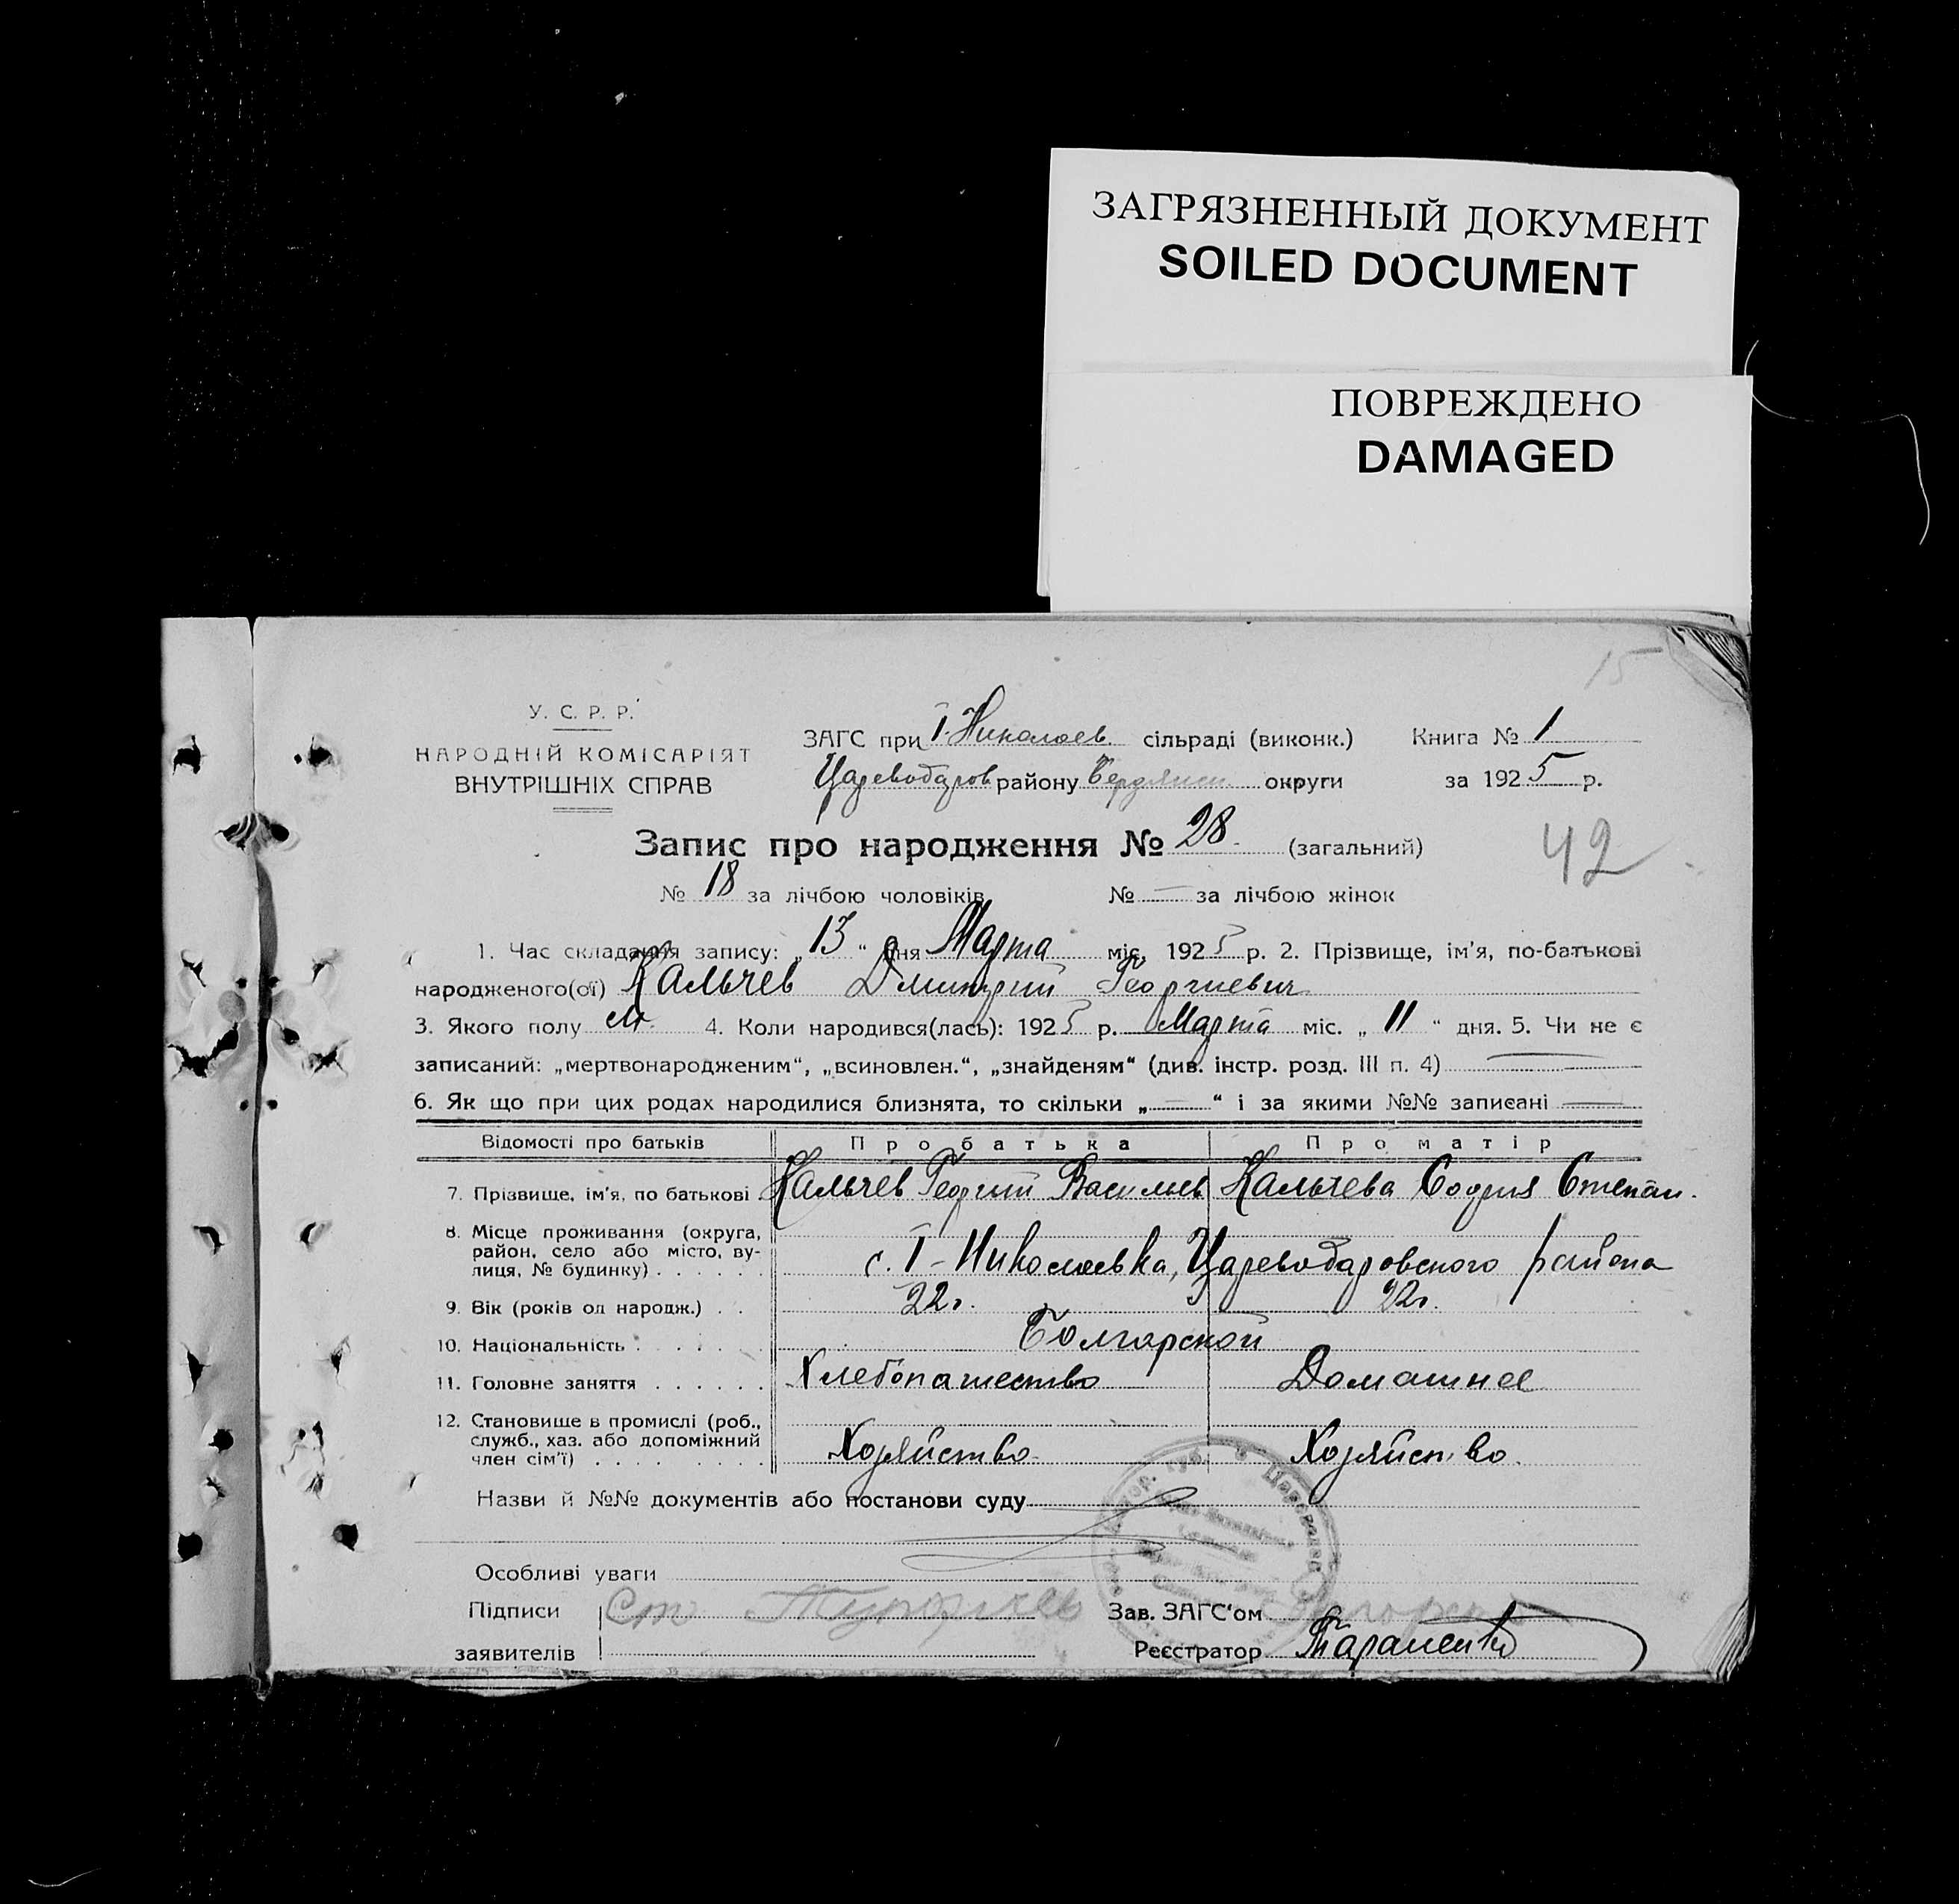 ЗАГРЯЗНЕННЫЙ ДОКУМЕНТ
SOILED DOCUMENT
ПОВРЕЖДЕНО
DAMAGED
15
У. С. Р. Р.
НАРОДНІЙ КОМІСАРІЯТ
ВНУТРІШНІХ СПРАВ
ЗАГС при І-Николаев. сільраді (виконк.) Книга № 1
Цареводаров району Бердянск. округи за 1925 р.
Запис про народження № 28. (загальний)
42
№ 18 за лічбою чоловіків № — за лічбою жінок
1. Час складання запису: „13“ дня Марта міс. 1925 р. 2. Прізвище, ім'я, по-батькові
народженого(ої) Кальчев Дмитрий Георгиевич
3. Якого полу м. 4. Коли народився(лась): 1925 р. Марта міс. „11“ дня. 5. Чи не є
записаний: „мертвонародженим“, „всиновлен.“, „знайденям“ (див. інстр. розд. III п. 4) —
6. Як що при цих родах народилися близнята, то скільки „—“ і за якими №№ записані —
Відомості про батьків Про батька Про матір
7. Прізвище, ім'я, по батькові Кальчев Георгий Васильев Кальчева София Степан.
8. Місце проживання (округа,
район, село або місто, ву-
лиця, № будинку) . . . . . . с. І-Николаевка, Цареводаровского района
9. Вік (років од народж.) . . 22 г. 22 г.
10. Національність . . . . . . Болгарской
11. Головне заняття . . . . . . Хлебопашество Домашнее
12. Становище в промислі (роб.,
служб., хаз. або допоміжний
член сім'ї) . . . . . . . . Хозяйство. Хозяйство.
Назви й №№ документів або постанови суду
Особливі уваги
Підписи Ст Зав. ЗАГС'ом
заявителів Реєстратор Тараненко